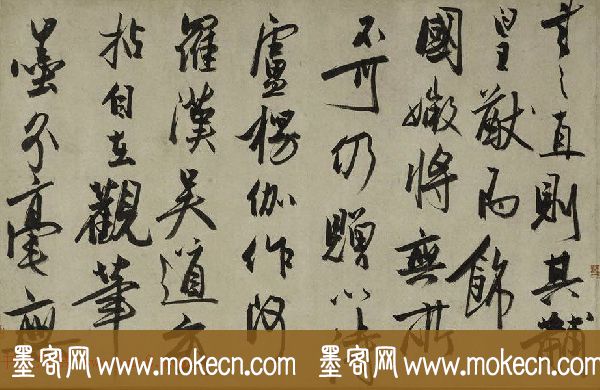 直則其輔
皇猷而飾
國媺將無所
不可仍贈以
盧楞伽作阿
羅漢吳道
拈自在觀筆
墨分毫無
墨客网www.mokecn.com 墨客网www.mokecn.com